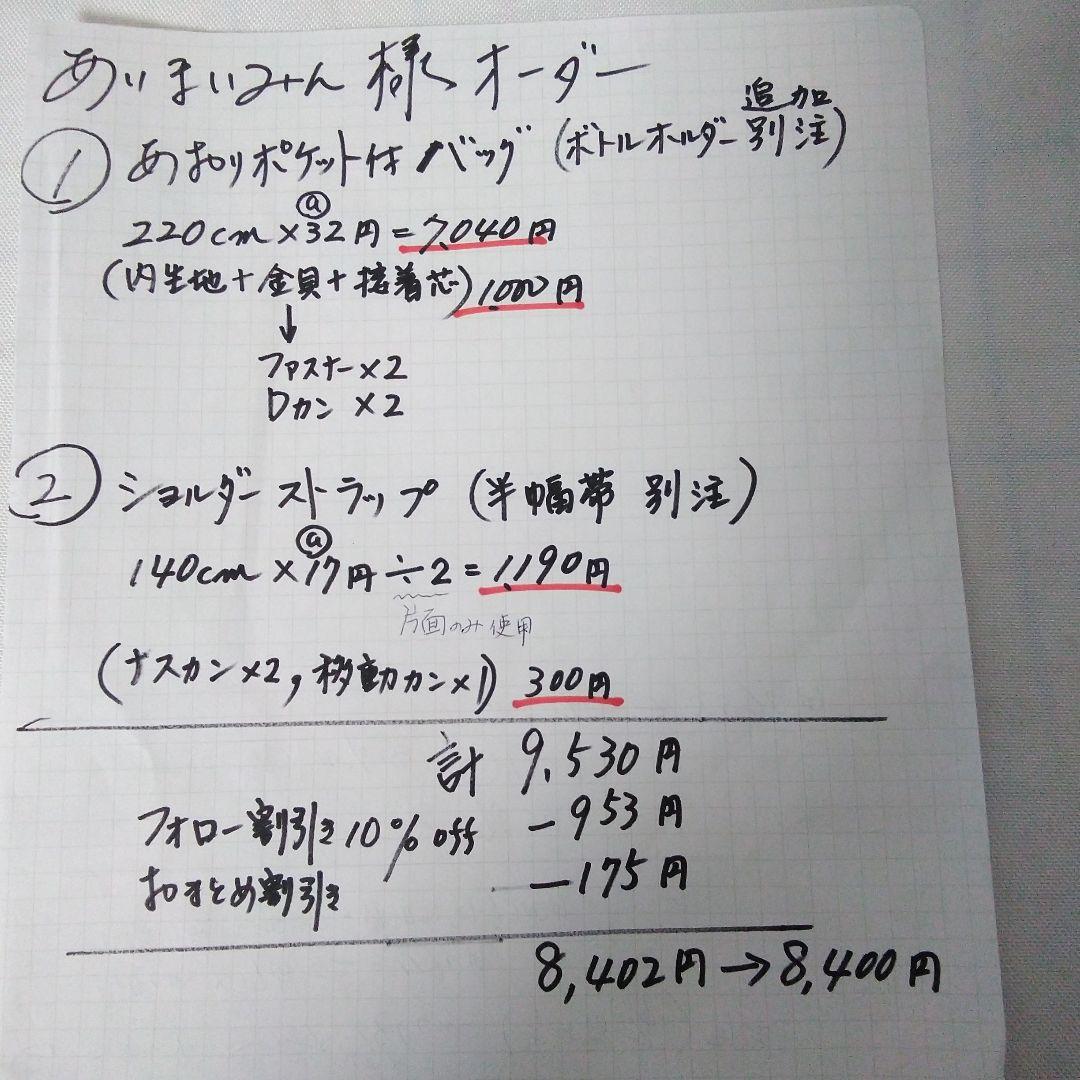 あいまいみん 様 オーダー
① あおりポケット付 バッグ (ボトルホルダー 追加 別注)
220cm×ⓐ32円=7,040円
(内生地+金具+接着芯) 1,000円
↓
ファスナー×2
Dカン ×2
② ショルダーストラップ (半幅帯 別注)
140cm×ⓐ17円÷2=1,190円
片面のみ使用
(ナスカン×2, 移動カン×1) 300円
計 9,530円
フォロー割引き10%off −953円
おまとめ割引き −175円
8,402円→8,400円